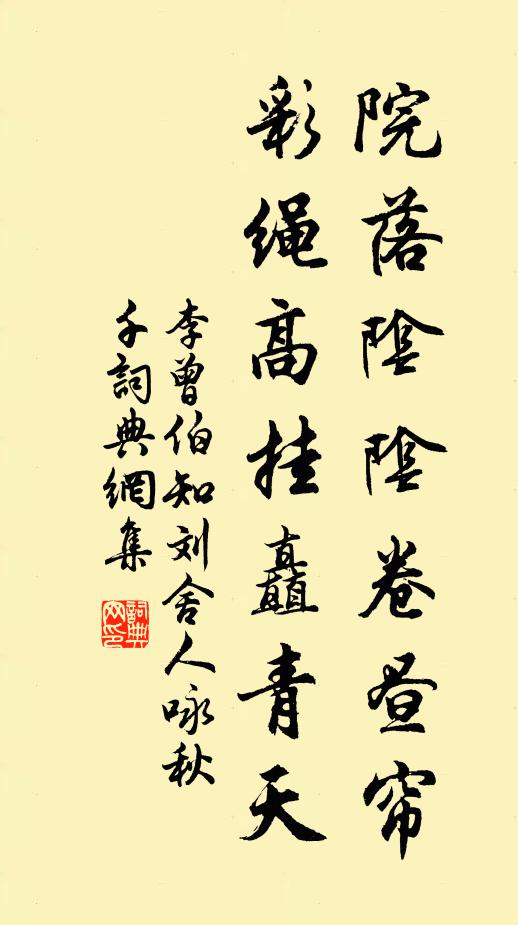 院落陰陰卷昼帘
彩绳高挂矗青天
李曾伯知刘舍人咏秋
千詞典網集
詞典网印